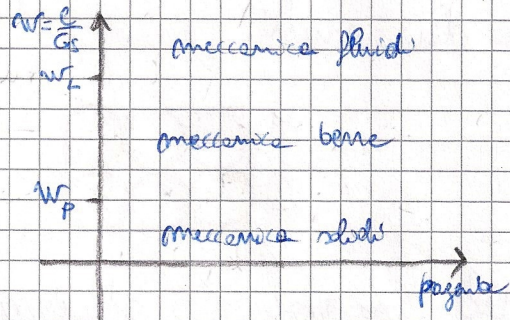 W = e/Gs
meccanica fluidi
W_L
meccanica terre
W_P
meccanica solidi